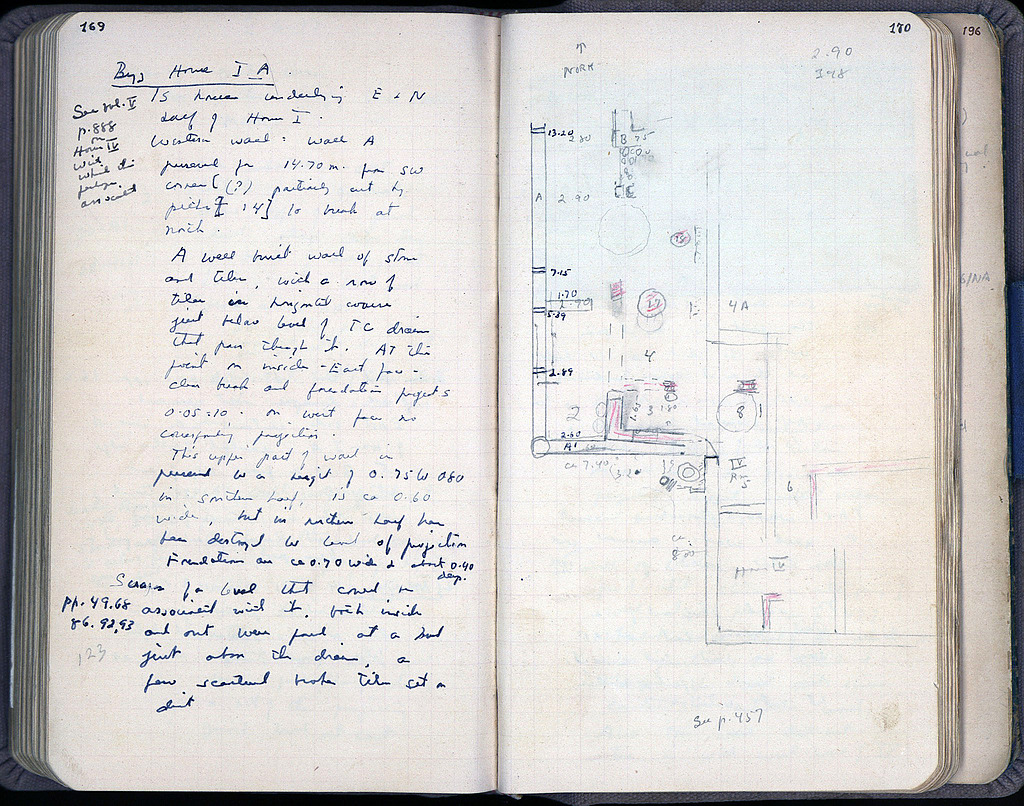 169
Byz House I A.
Is house underlying E & N
half of House I.
See vol. V
p. 888
on
House IV
with
which this
perhaps
associated
Western wall: Wall A
preserved for 14.70 m. from SW
corner (?) partially cut by
pithos [ 14] to break at
north.
A well built wall of stone
and tiles, with a row of
tiles in horizontal course
just below level of TC drain
that pass through it. At this
point on inside - East face -
clear break and foundation projects
0.05-10. On west face no
corresponding projection.
This upper part of wall is
preserved to a height of 0.75 to 080
in southern half, is ca 0.60
wide, but in northern half has
been destroyed to level of projection
Foundations are ca 0.70 wide & about 0.40
deep.
Scraps of a level that could be
pp. 49.68
86.92,93
123
associated with it, both inside
and out were found at a level
just above the drain, a
few scattered broken tiles set in
dirt
170
196
2.90
↑
NORTH
13.20
2.80
B
A
2.90
7.15
1.70
2.90
5.89
4A
4
2.89
2
3
1.80
8
2.60
A'
ca 7.40
3.20
IV
Rm
5
6
ca.
8.00
House IV
See p. 457